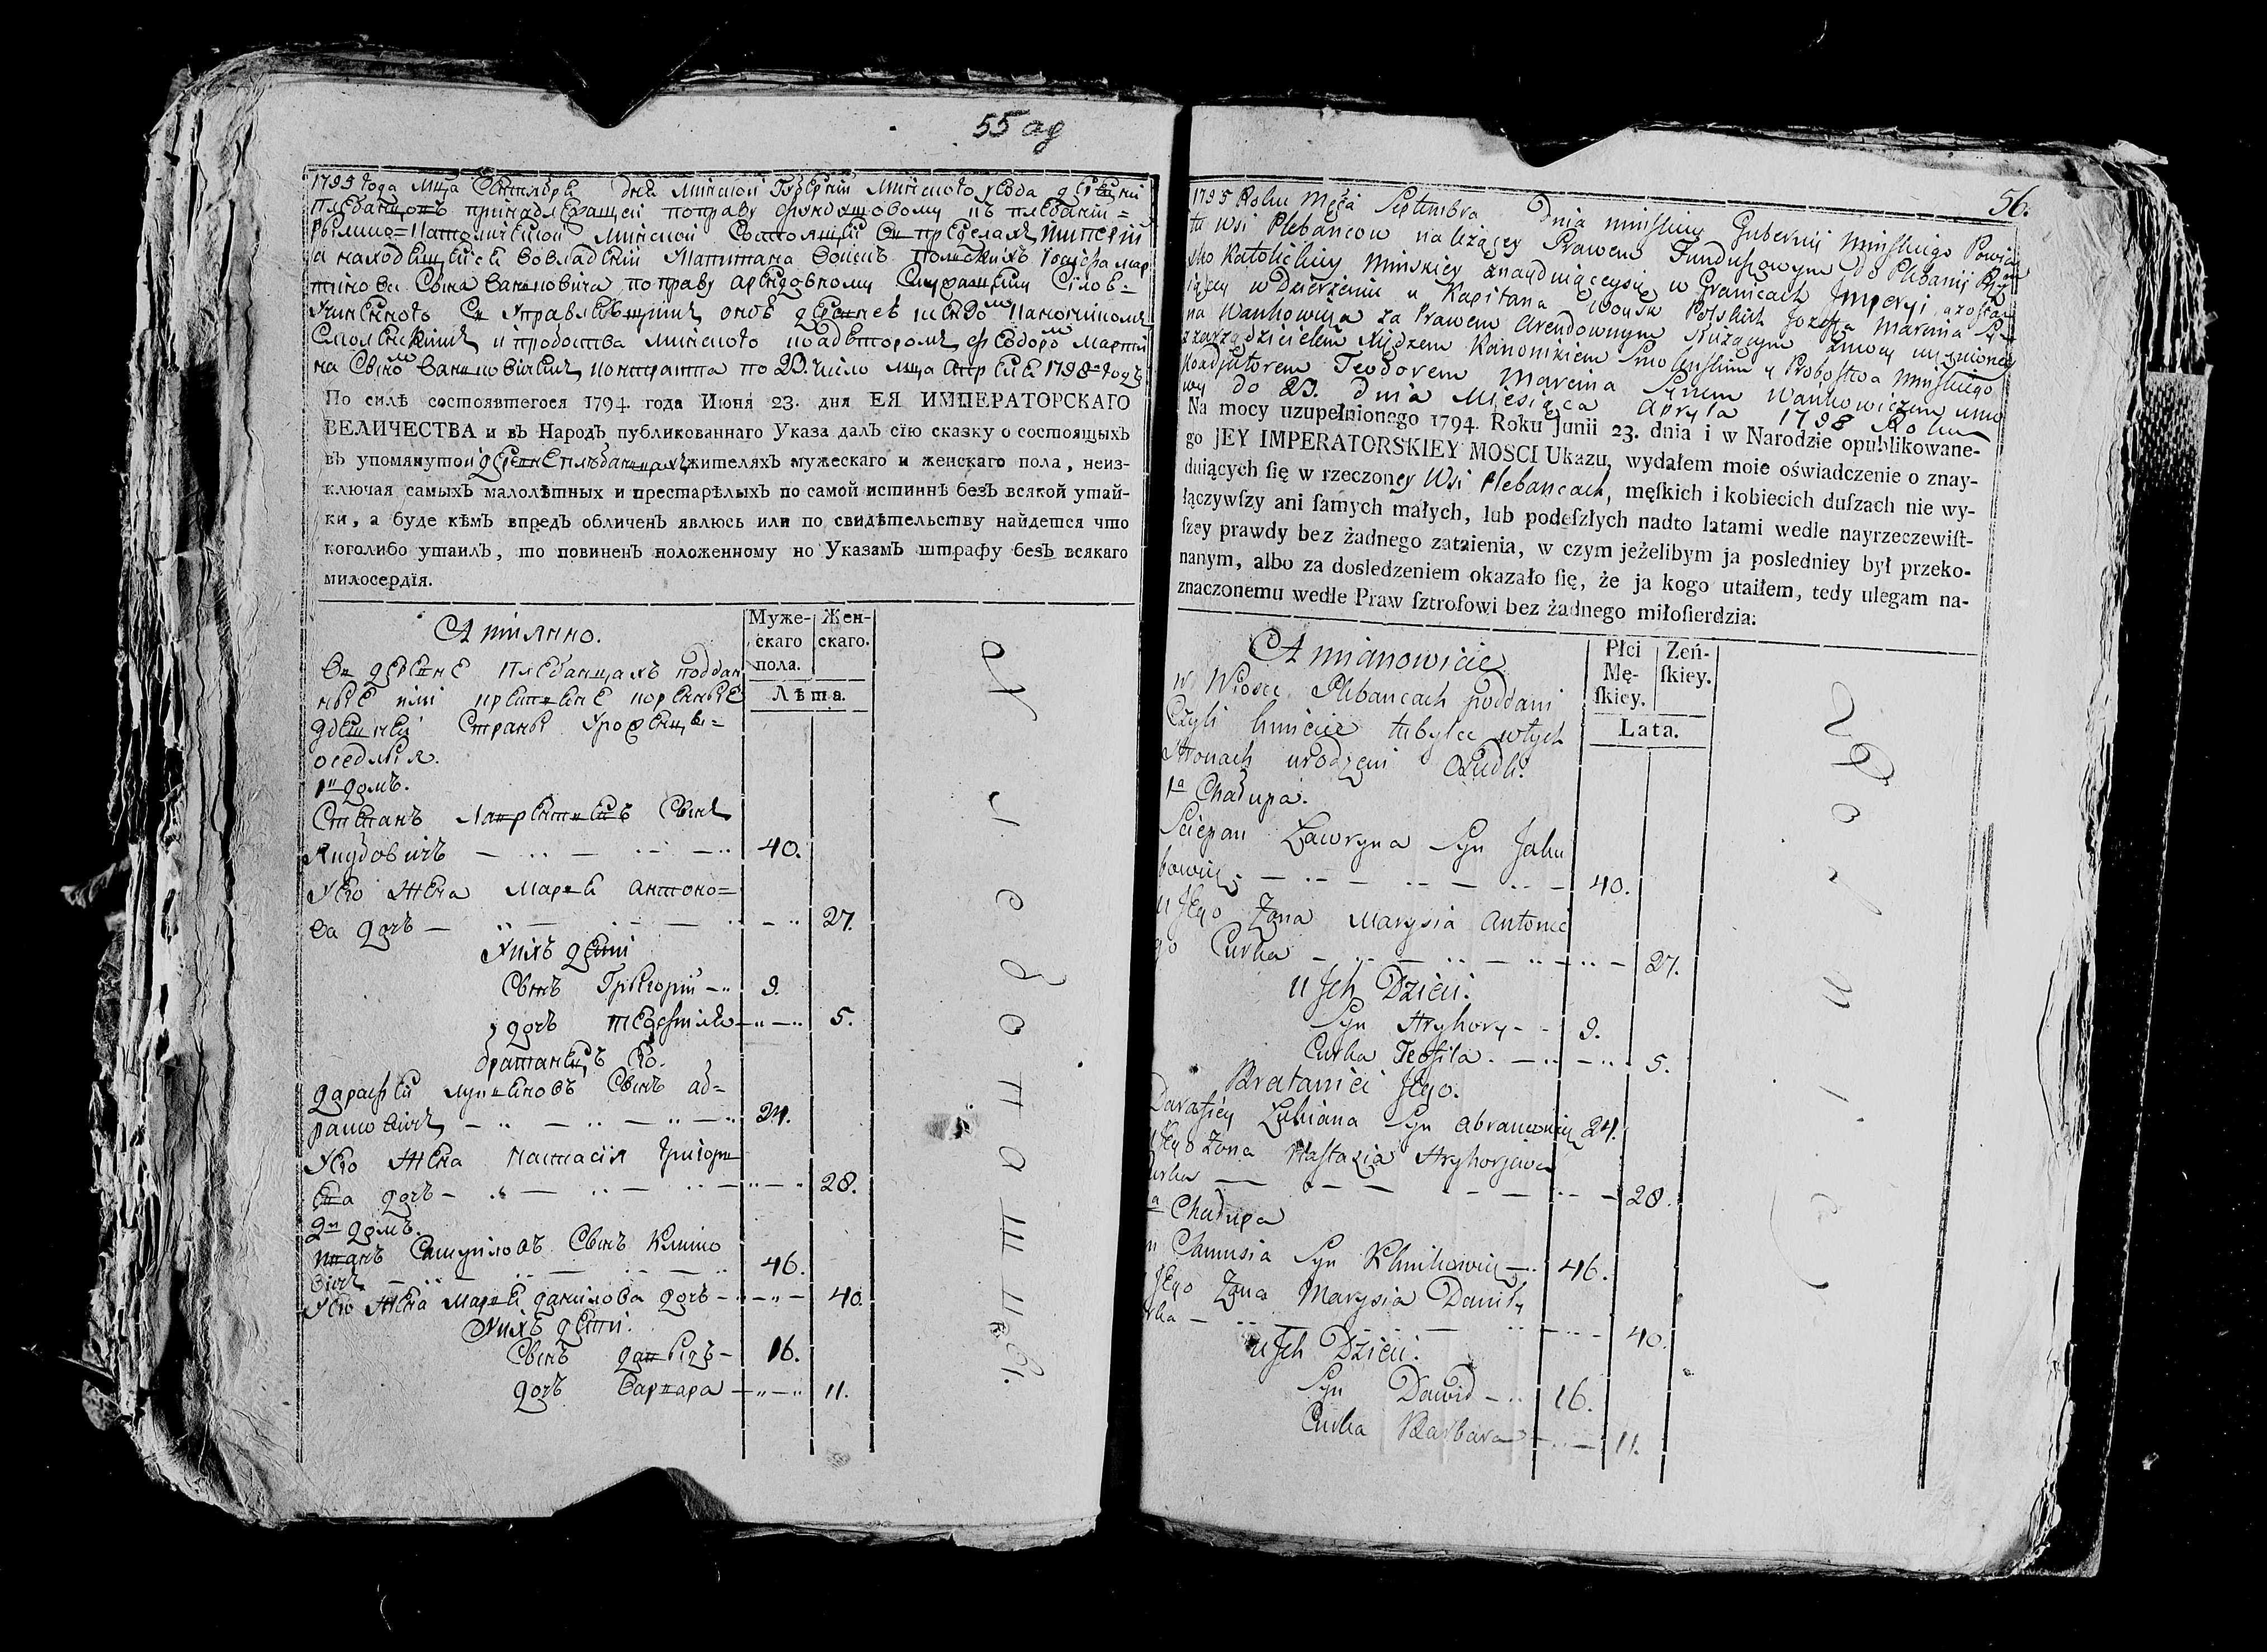 55 об
1795 года мца Сентября дня минской Губернии минского уезда деревни
плебанцовъ принадлежащей по праву фундушовому къ плебании=
Римско=Католической минской состоящей въ пределахъ Империи
а находящейся во владении Капитана войскъ Польскихъ Иосифа мар
тинова Сына Ваньковича по праву арендовному
Смоленскимъ и пробоства минского коадъюторомъ Феодоромъ Марти
на Сыномъ Ваньковичемъ контракта по 23. число мца Апреля 1798 году
По силѣ состоявшегося 1794. года Июня 23. дня ЕЯ ИМПЕРАТОРСКАГО
ВЕЛИЧЕСТВА и въ Народъ публикованнаго Указа далъ сїю сказку о состоящыхъ
въ упомянутой деревне плебанцахъ жителяхъ мужескаго и женскаго пола, неиз-
ключая самыхъ малолѣтныхъ и престарѣлыхъ по самой истиннѣ безъ всякой утай-
ки, а буде кѣмъ впредъ обличенъ явлюсь или по свидѣтельству найдется что
коголибо утаилъ, то повиненъ положенному по Указамъ штрафу безъ всякаго
милосердїя.
Муже-
скаго
пола.
Жен-
скаго.
Лѣта.
А имянно.
Въ деревне Плебанцахъ поддан
ные или крестьяне коренные
здешней Страны уроженцы=
оседлыя.
1й домъ.
Степанъ Лаврентьевъ Сынъ
Якубовичъ 40.
У его Жена Марья антоно=
ва дочь 27.
У ихъ дети
Сынъ Григорий 9.
дочь Теофила 5.
братанецъ его.
дарафей лукьяновъ Сынъ аб=
рамовичъ 24.
У его Жена настасия Григорь
ева дочь 28.
2й домъ.
Иванъ Самуиловъ Сынъ Климо
вичъ 46.
У его Жена Марья данилова дочь 40.
У ихъ дети.
Сынъ давыдъ 16.
дочь варвара 11.
56.
1795 Roku Mca Septembra Dnia minskiey Gubernij Minskiego Powia
tu wsi Plebancow należącey Prawem Funduszowym do Plebanij Rzym
sko Katolickiey Minskiey znayduiącey się w Granicach Imperyi a zosta
iącey w Dzierżeniu u Kapitana Woysk Polskich Jozefa Marcina Sy
na Wankowicza za Prawem Arendownym służącym z mocy uczynioney
z zarządzicielem Xiędzem Kanonikiem Smolenskim y Probostwa Minskiego
Koadjutorem Teodorem Marcina Synem Wankowiczem umo
wy do 23. dnia Miesiąca Apryla 1798 Roku
Na mocy uzupełnionego 1794. Roku Junii 23. dnia i w Narodzie opublikowane-
go JEY IMPERATORSKIEY MOSCI Ukazu, wydałem moie oświadczenie o znay-
duiących ſię w rzeczoney Wsi Plebancach, męſkich i kobiecich duſzach nie wy-
łączywſzy ani ſamych małych, lub podeſzłych nadto latami wedle nayrzeczewiſt-
ſzey prawdy bez żadnego zataienia, w czym jeżelibym ja posledniey był przeko-
nanym, albo za dosledzeniem okazało ſię, że ja kogo utaiłem, tedy ulegam na-
znaczonemu wedle Praw ſztrofowi bez żadnego miłoſierdzia.
Płci
Mę-
ſkiey.
Zeń-
ſkiey.
Lata.
A mianowicie
w Wiosce Plebancach poddani
Czyli kmiecie tubylce w tych
Stronach urodzeni Osiedli.
1a Chałupa.
Sciepan Ławryna Syn Jaku
bowicz 40.
u Jego Zona Marysia Antonie
go Curka 27.
u Jch Dzieci.
Syn Hryhory 9.
Curka Teofila 5.
Bratanici Jego.
Darafiey Łukiana Syn Abramowicz 24.
u Jego Zona Nastazia Hryhorjewa
Curka 28.
a Chałupa
Chmusia Syn Klimkowicz 46.
Jego Zona Marysia Daniły
rka 40.
u Jch Dzieci.
Syn Dawid 16.
Curka Barbara 11.